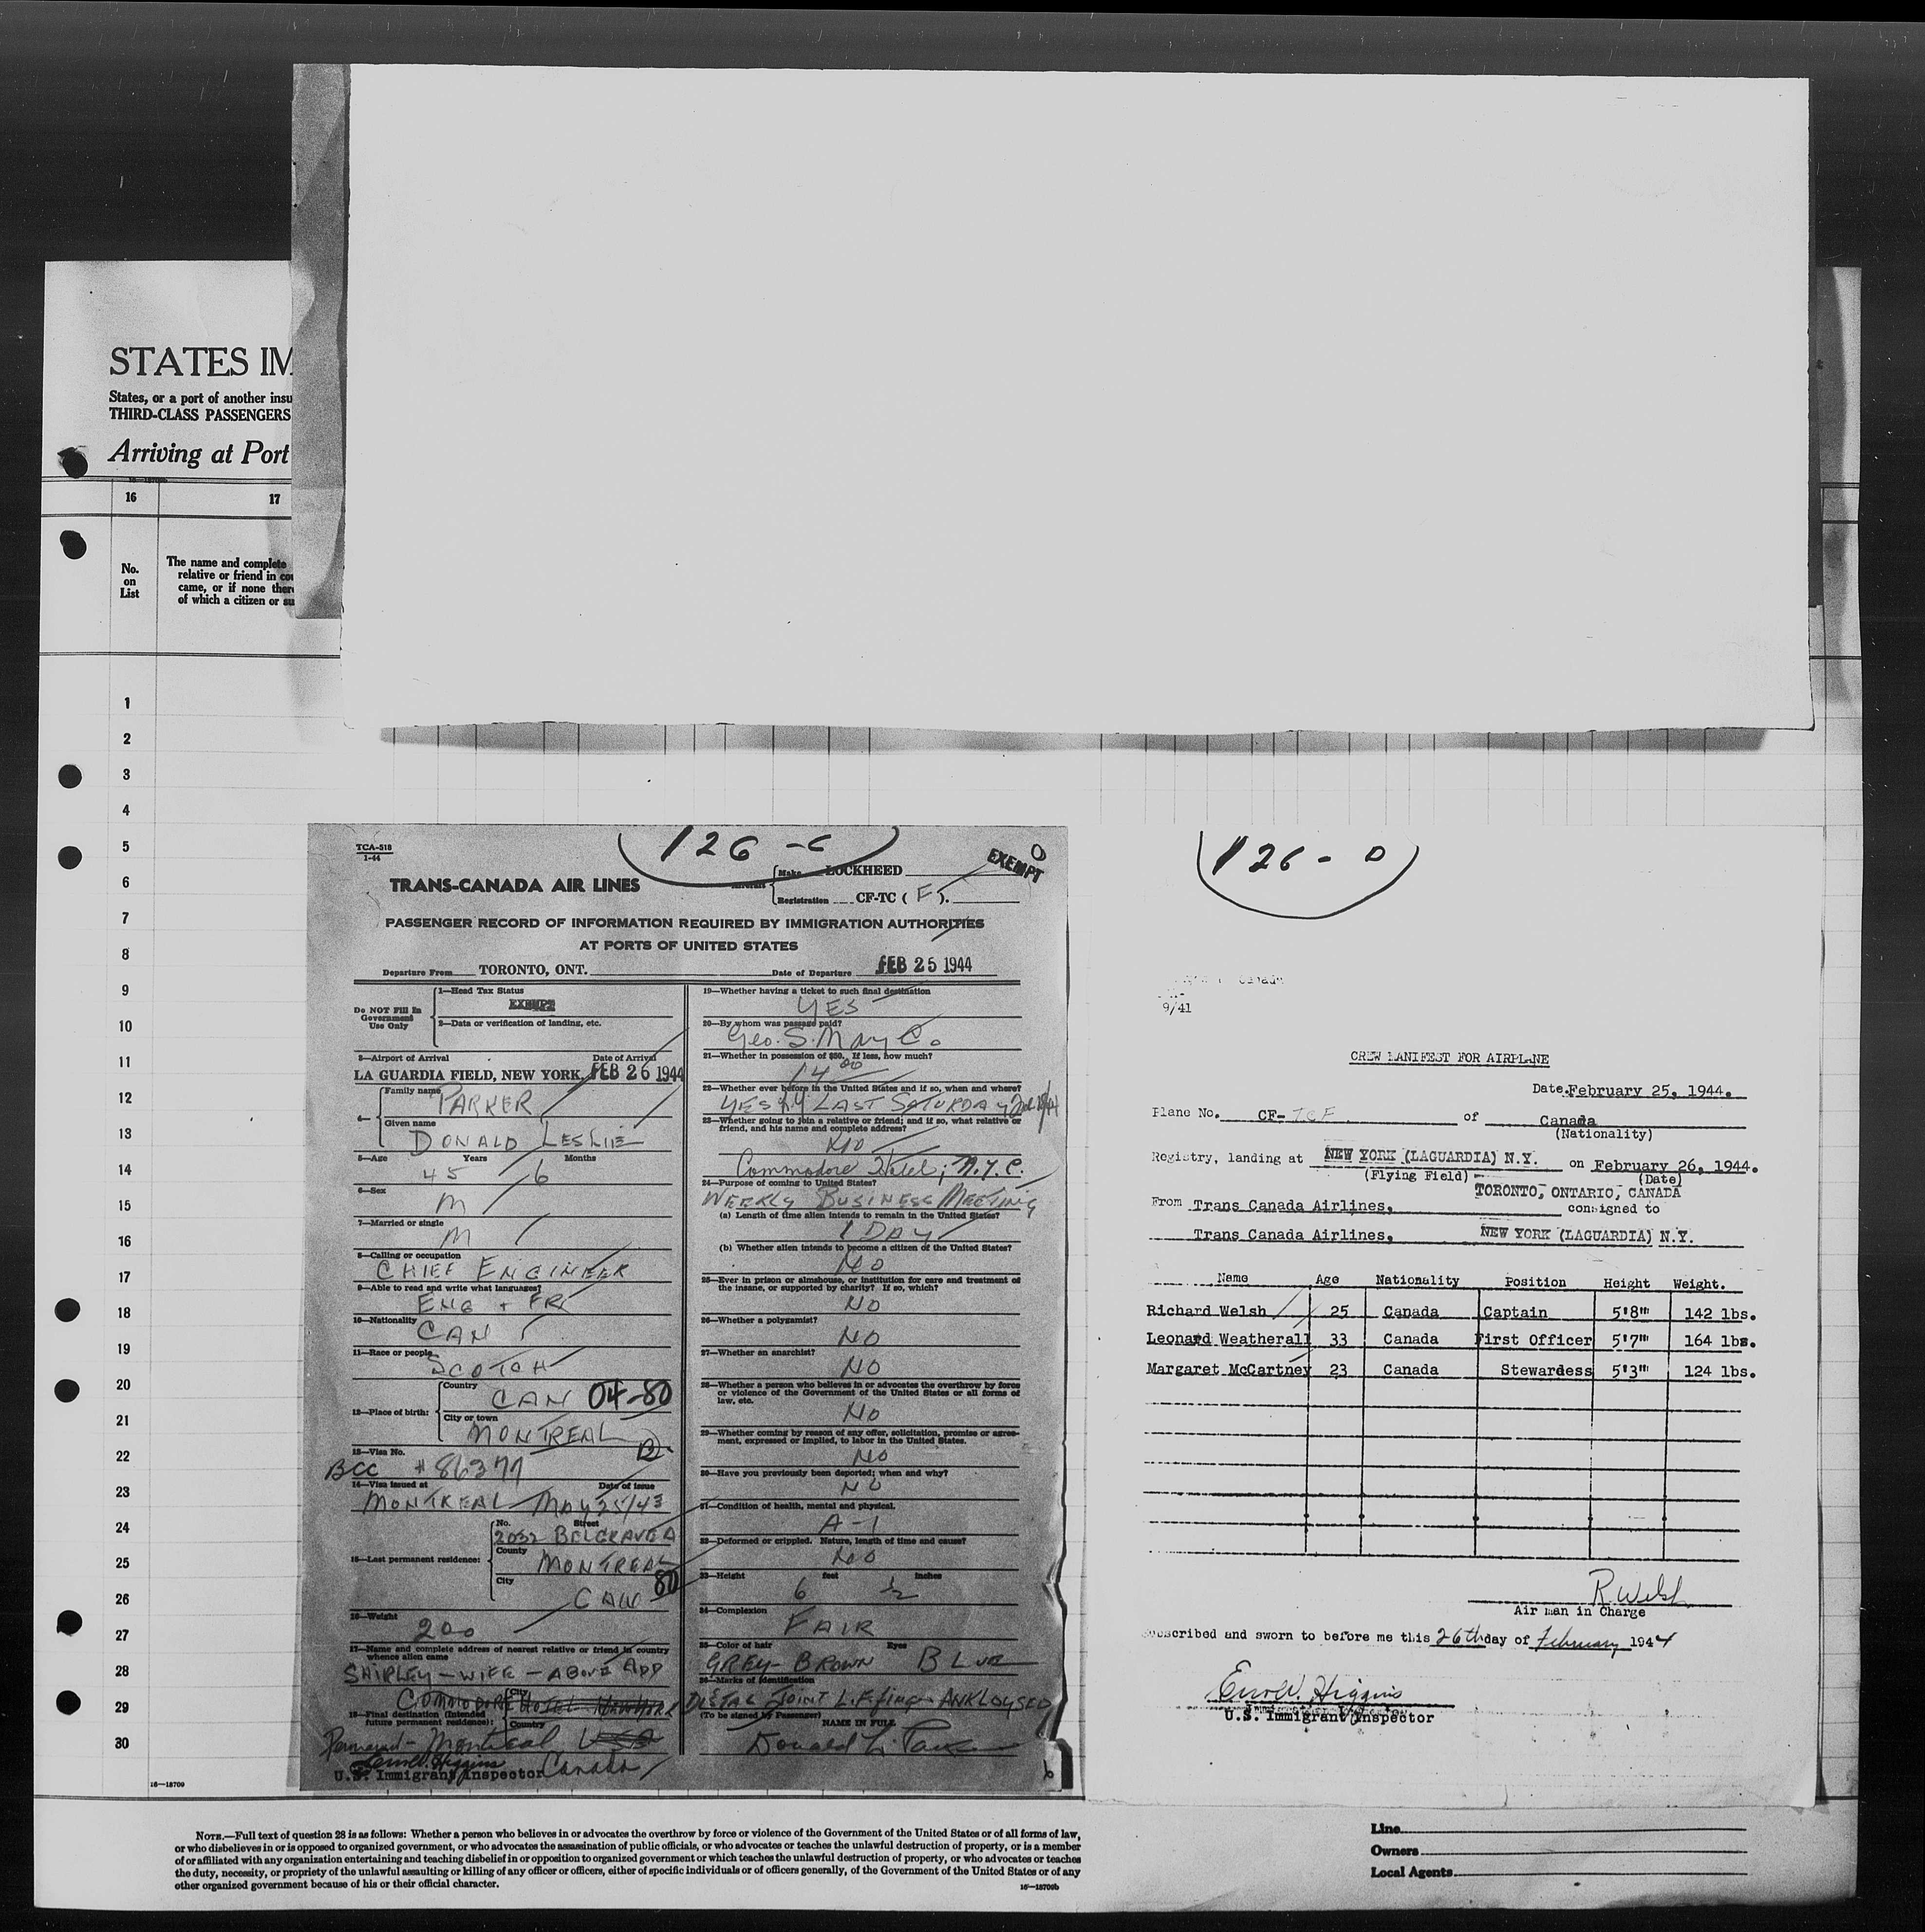 STATES IM
States, or a port of another insu
THIRD-CLASS PASSENGERS
Arriving at Port
16 17
No.
on
List
The name and complete
relative or friend in cou
came, or if none there
of which a citizen or su
1
2
3
4
5
6
7
8
9
10
11
12
13
14
15
16
17
18
19
20
21
22
23
24
25
26
27
28
29
30
16—18709
126-C
TCA-518
1-44
EXEMPT
TRANS-CANADA AIR LINES
Aircraft Make LOCKHEED
Registration CF-TC ( F ).
PASSENGER RECORD OF INFORMATION REQUIRED BY IMMIGRATION AUTHORITIES
AT PORTS OF UNITED STATES
Departure From TORONTO, ONT. Date of Departure FEB 25 1944
Do NOT Fill In
Government
Use Only
1—Head Tax Status
EXEMPT
2—Data or verification of landing, etc.
3—Airport of Arrival Date of Arrival
LA GUARDIA FIELD, NEW YORK. FEB 26 1944
4— Family name
PARKER
Given name
DONALD LESLIE
5—Age Years Months
45 6
6—Sex
M
7—Married or single
M
8—Calling or occupation
CHIEF ENGINEER
9—Able to read and write what languages?
ENG + FR
10—Nationality
CAN
11—Race or people
SCOTCH
12—Place of birth: Country
CAN 04-80
City or town
MONTREAL
13—Visa No.
BCC #86377
14—Visa issued at Date of issue
MONTREAL MAY 25/43
15—Last permanent residence: No. Street
2032 BELGRAVE A
County
MONTREAL
City
CAN 80
16—Weight
200
17—Name and complete address of nearest relative or friend in country
whence alien came
SHIRLEY - WIFE - ABOVE ADD
18—Final destination (Intended
future permanent residence): City
COMMODORE HOTEL NEW YORK
Country
Permanent - Montreal USA
Errol W. Higgins Canada
U.S. Immigrant Inspector
19—Whether having a ticket to such final destination
YES
20—By whom was passage paid?
Geo. S. May Co
21—Whether in possession of $50. If less, how much?
14 00
22—Whether ever before in the United States and if so, when and where?
YES NY LAST SATURDAY
23—Whether going to join a relative or friend; and if so, what relative or
friend, and his name and complete address?
NO
Commodore Hotel; N.Y.C.
24—Purpose of coming to United States?
WEEKLY BUSINESS MEETING
(a) Length of time alien intends to remain in the United States?
1 DAY
(b) Whether alien intends to become a citizen of the United States?
NO
25—Ever in prison or almshouse, or institution for care and treatment of
the insane, or supported by charity? If so, which?
NO
26—Whether a polygamist?
NO
27—Whether an anarchist?
NO
28—Whether a person who believes in or advocates the overthrow by force
or violence of the Government of the United States or all forms of
law, etc.
NO
29—Whether coming by reason of any offer, solicitation, promise or agree-
ment, expressed or implied, to labor in the United States.
NO
30—Have you previously been deported; when and why?
NO
31—Condition of health, mental and physical.
A-1
32—Deformed or crippled. Nature, length of time and cause?
NO
33—Height feet inches
6 ½
34—Complexion
FAIR
35—Color of hair Eyes
GREY-BROWN BLUE
36—Marks of identification
DISTAL JOINT L.F. finger ANKLOYSED
(To be signed by Passenger)
NAME IN FULL
Donald L. Parker
126-D
Canada
9/41
CREW MANIFEST FOR AIRPLANE
Date February 25, 1944.
Plane No. CF-TCF of Canada
(Nationality)
Registry, landing at NEW YORK (LAGUARDIA) N.Y. on February 26, 1944.
(Flying Field) (Date)
TORONTO, ONTARIO, CANADA
From Trans Canada Airlines, consigned to
Trans Canada Airlines, NEW YORK (LAGUARDIA) N.Y.
Name Age Nationality Position Height Weight.
Richard Welsh 25 Canada Captain 5'8"" 142 lbs.
Leonard Weatherall 33 Canada First Officer 5'7"" 164 lbs.
Margaret McCartney 23 Canada Stewardess 5'3"" 124 lbs.
R Welsh
Air Man in Charge
ubscribed and sworn to before me this 26th day of February 1944
Errol W. Higgins
U.S. Immigrant Inspector
NOTE.—Full text of question 28 is as follows: Whether a person who believes in or advocates the overthrow by force or violence of the Government of the United States or of all forms of law,
or who disbelieves in or is opposed to organized government, or who advocates the assassination of public officials, or who advocates or teaches the unlawful destruction of property, or is a member
of or affiliated with any organization entertaining and teaching disbelief in or opposition to organized government or which teaches the unlawful destruction of property, or who advocates or teaches
the duty, necessity, or propriety of the unlawful assaulting or killing of any officer or officers, either of specific individuals or of officers generally, of the Government of the United States or of any
other organized government because of his or their official character.
16—18709b
Line
Owners
Local Agents